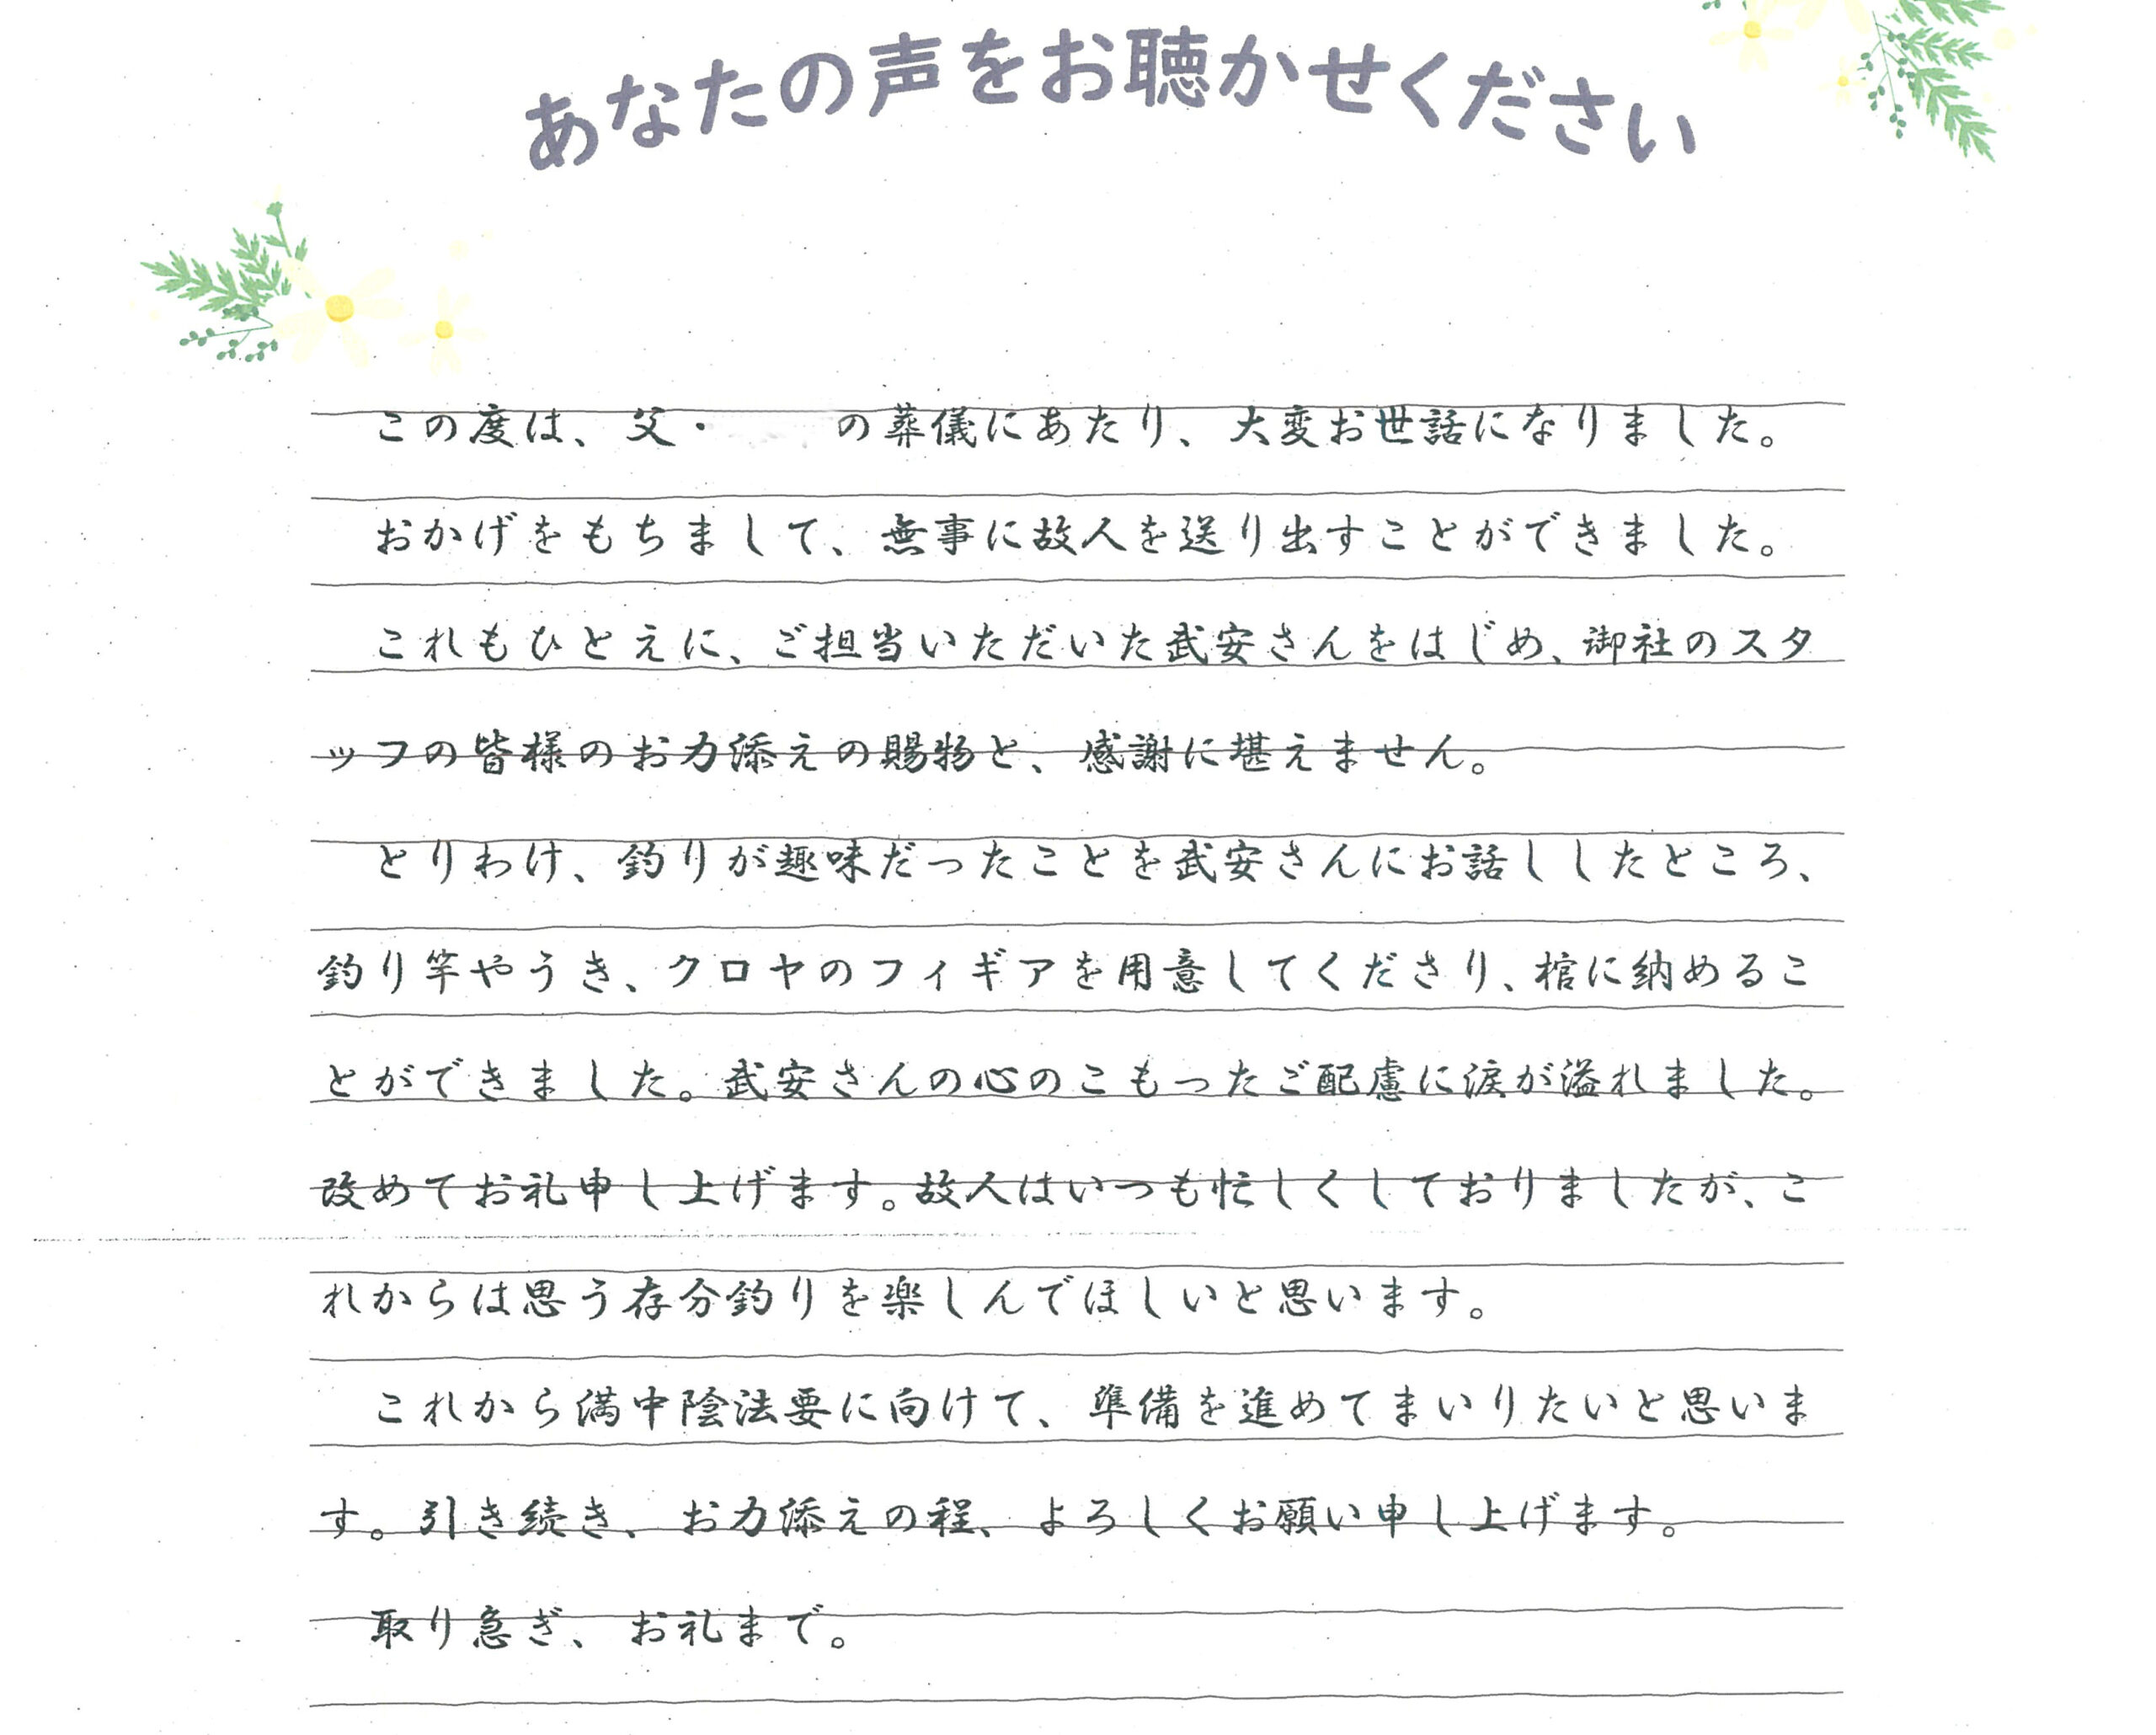 あなたの声をお聴かせください
この度は、父・　　の葬儀にあたり、大変お世話になりました。
おかげをもちまして、無事に故人を送り出すことができました。
これもひとえに、ご担当いただいた武安さんをはじめ、御社のスタ
ッフの皆様のお力添えの賜物と、感謝に堪えません。
とりわけ、釣りが趣味だったことを武安さんにお話ししたところ、
釣り竿やうき、クロヤのフィギアを用意してくださり、棺に納めるこ
とができました。武安さんの心のこもったご配慮に涙が溢れました。
改めてお礼申し上げます。故人はいつも忙しくしておりましたが、こ
れからは思う存分釣りを楽しんでほしいと思います。
これから満中陰法要に向けて、準備を進めてまいりたいと思いま
す。引き続き、お力添えの程、よろしくお願い申し上げます。
取り急ぎ、お礼まで。